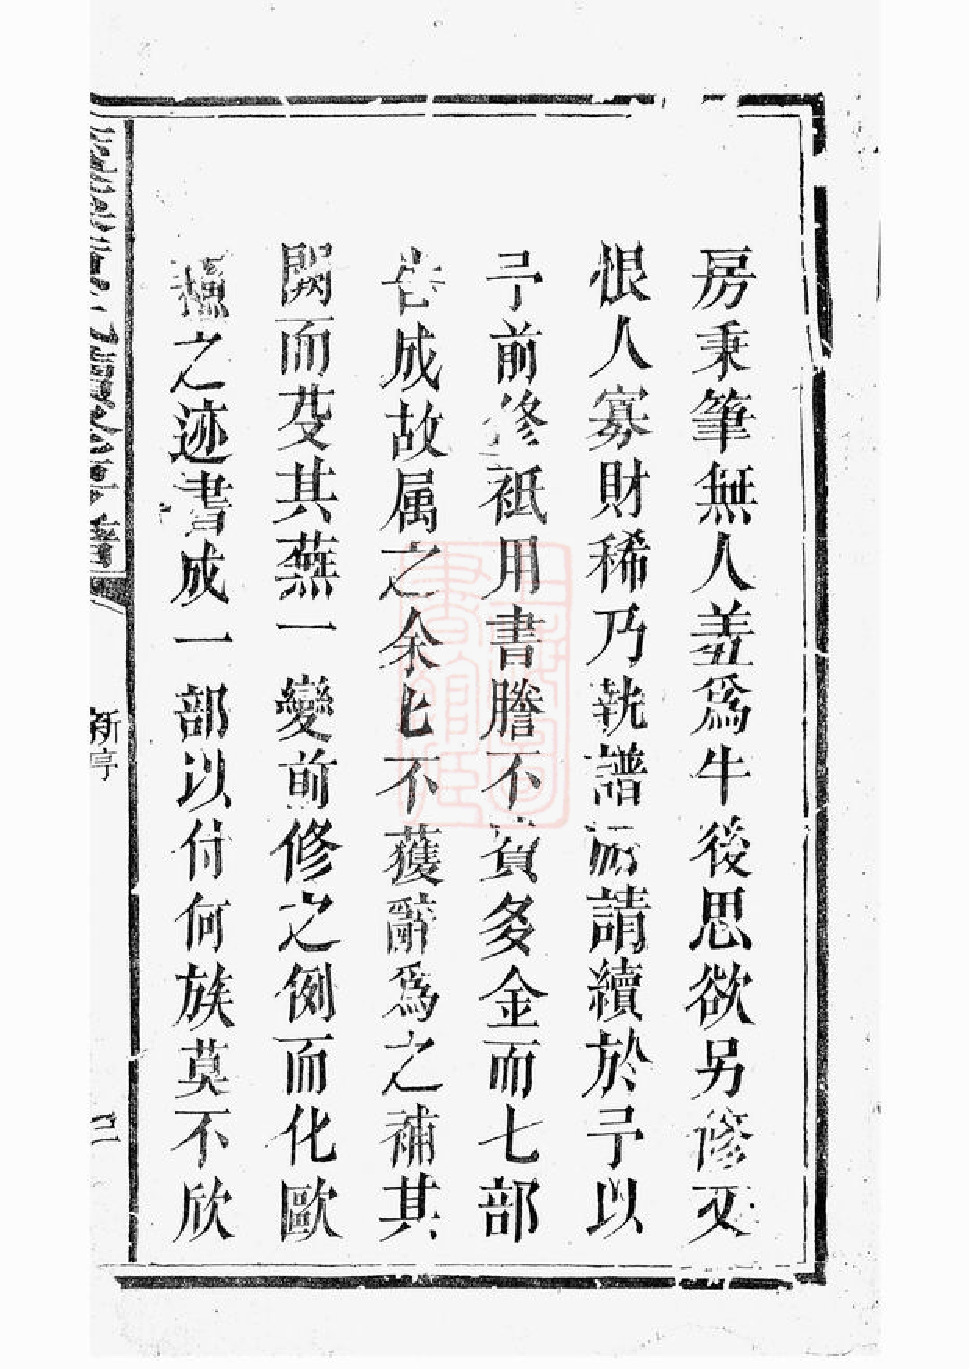 房秉筆無人羞爲牛後思欲另修又
恨人寡財稀乃執譜而請續於予以
予前修祗用書謄不費多金而七部
告成故属之余也不獲辭爲之補其
闕而芟其蕪一變前修之例而化歐
蘓之迹書成一部以付何族莫不欣
新序
二